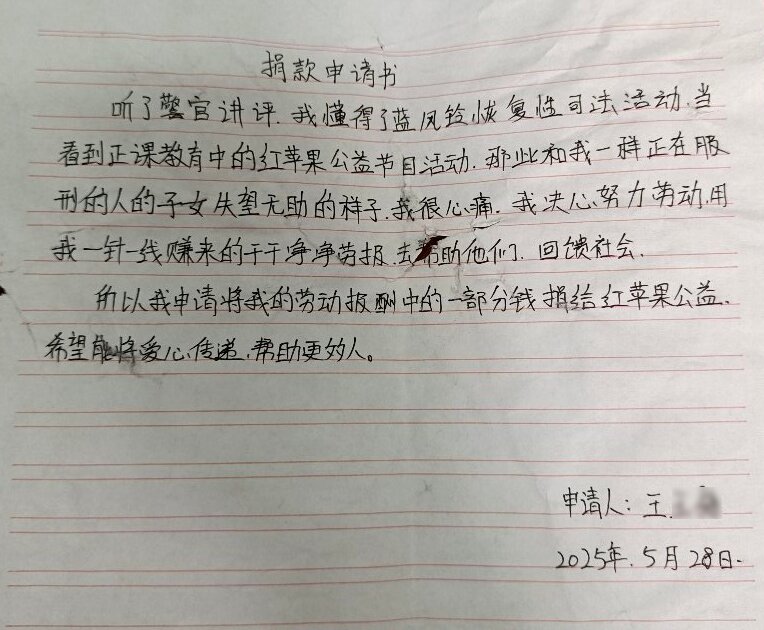 捐款申请书
听了警官讲评,我懂得了蓝风铃恢复性司法活动,当
看到正课教育中的红苹果公益节目活动,那些和我一样正在服
刑的人的子女失望无助的样子,我很心痛,我决心努力劳动,用
我一针一线赚来的干干净净劳报去帮助他们,回馈社会.
所以我申请将我的劳动报酬中的一部分钱捐给红苹果公益,
希望能将爱心传递,帮助更多的人。
申请人:王
2025年.5月28日.